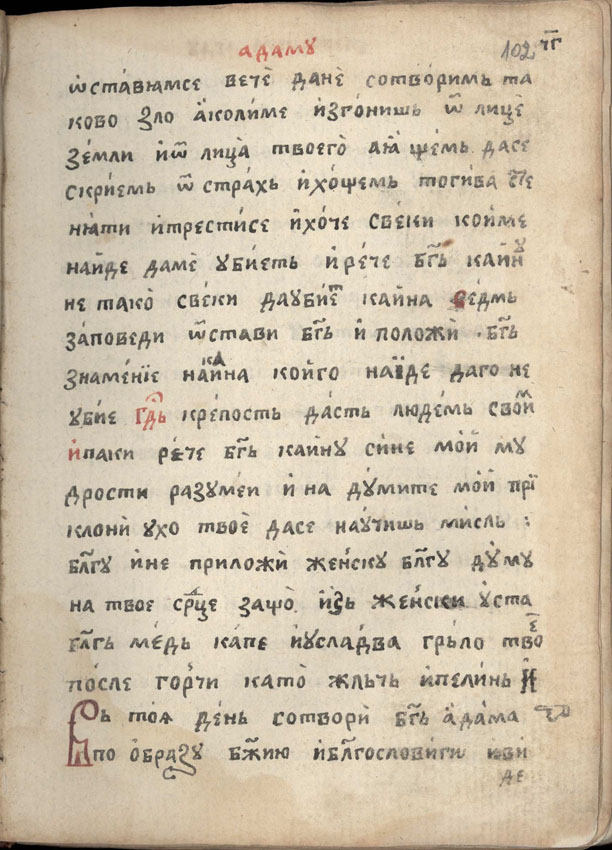 адаму 102 чг҃
ѡ҆ставюамсе вече данѐ сотво́римь та
ково ѕло а҆колиме и҆згонишь ѿ лицѐ
зе́мли и҆ѿ лица̀ твоего̀ аꙗ щемь дасе
скрїемь ѿ страхь и҆хо́щемь тогива тꙋе
нꙗти и҆трести́се и҆хо́че све́ки кои҆ме
наи҆де даме ᲂубиеть и҆ ре́че бг҃ь каи҆нꙋ
не тако̀ свеки даᲂуби́еть каи҆на седмь
за́поведи ѿстави бг҃ь и҆ положѝ бг҃ь
знаме́нїе накаи҆на кои҆го наи҆де даго не
ᲂубие гд҃ь крепость да́сть людемь свои҆мь
и҆паки ре́че бг҃ь каи҆нꙋ си́не мои҆ мꙋ
дрости разꙋмеи и҆ на дꙋ́мите мои҆ прїи
клонѝ ᲂухо твоѐ дасе наᲂу́чишь ми́сль :
бл҃гꙋ и҆не приложѝ же́нскꙋ бл҃гꙋ дꙋ́мꙋ
на твое ср҃дце защо̀ и҆зь же́нски ᲂуста
бл҃гь ме́дь ка́пе и҆ᲂусла́два грьло твое
по́сле го́рчи като̀ жльчь и҆пелинь и҆
Вь тоꙗ де́нь сотворѝ бг҃ь а҆да́ма
по о҆бразꙋ бж҃ию и҆бл҃гослови́ги иви
де